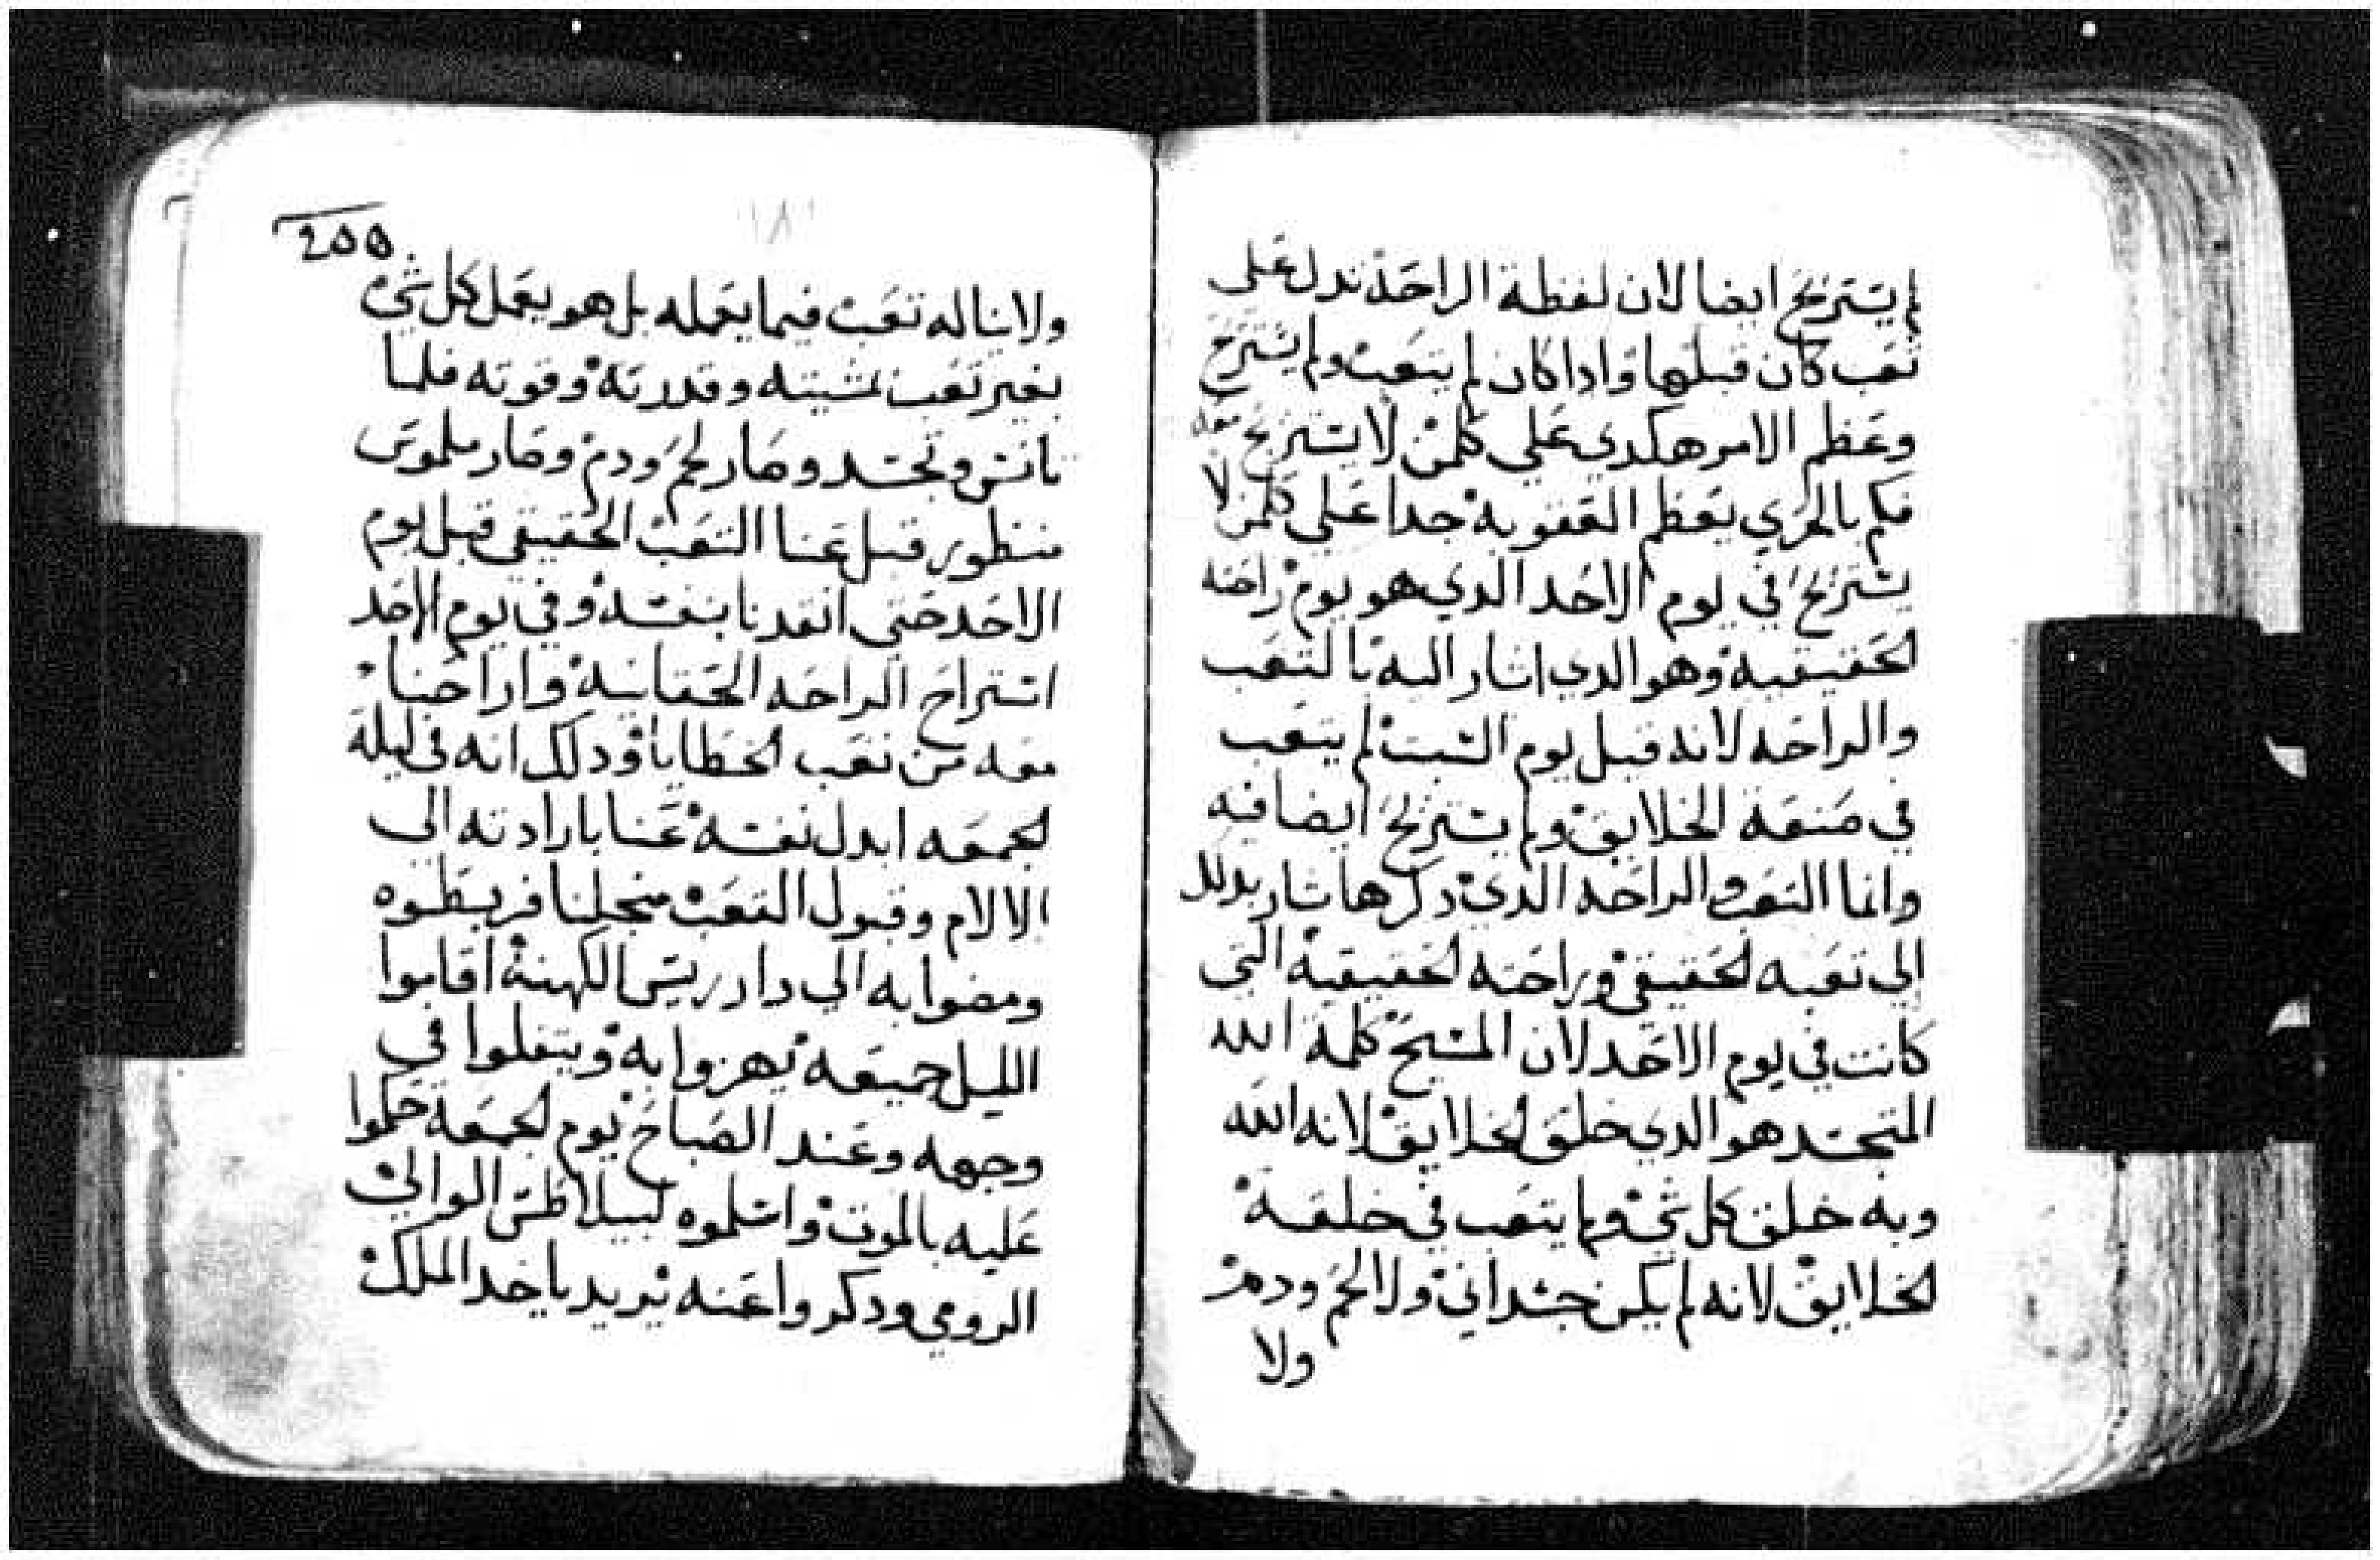 لم يستريح ايضا لان لفظة الراحة تدل على
تعب كان قبلها واداكان لم يتعب ولم يستريح
وعظم الامر هكدي علي كلمن لا يستريح معه
فكم بالحري يعظم العقوبه جدا علي كلمن لا
يستريح في يوم الاحد الدي هو يوم راحته
لحقيقيه وهو الدي اشار اليه بالتعب
والراحه لانه قبل يوم السبت لم يتعب
في صنعة الخلايق ولم يستريح ايضا فيه
وانما التعب والراحه الدي دكرها شار بدلك
الي تعبه لحقيقي وراحته لحقيقيه التي
كانت في يوم الاحد لان المسيح كلمة الله
المتجسد هو الدي خلق لخلايق لانه الله
وبه خلق كل شي ولم يتعب في خلقة
لخلايق لانه لم يكن جسداني ولا لحم ودم
ولا
ولا ناله تعب فيما يعمله بل هو يعمل كل شي
بغير تعب بمشيته وقدرته وقوته فلما
تانس وتجسد وصار لحم ودم وصار ملموس
منظور قبل عنا التعب الحقيقي قبل يوم
الاحد حتي انقدنا بنفسه وفي يوم الاحد
استراح الراحه الحقانيه واراحنا
معه من تعب لخطايا ودلك انه في ليلة
لجمعه ابدل نفسه عنا بارادته الي
الالام وقبول التعب منجلنا فربطوه
ومضوا به الي دار ريس الكهنة اقاموا
الليل جميعه يهزوا به ويتفلوا في
وجهه وعند الصباح يوم لجمعة حكموا
عليه بالموت واسلموه لبيلاطس الوالي
الرومي ودكروا عنه يريد ياخد الملك